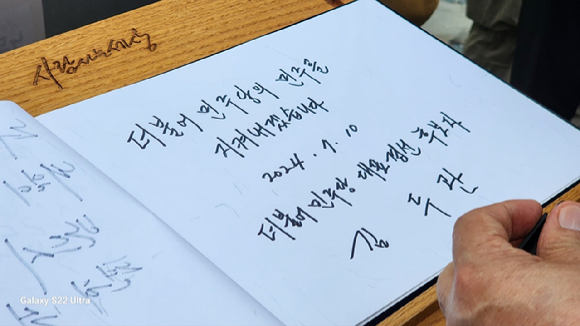 사람사는세상
더불어 민주당의 민주를
지켜내겠습니다
2024. 7. 10
더불어민주당 대표경선 후보자
김 두 관
Galaxy S22 Ultra